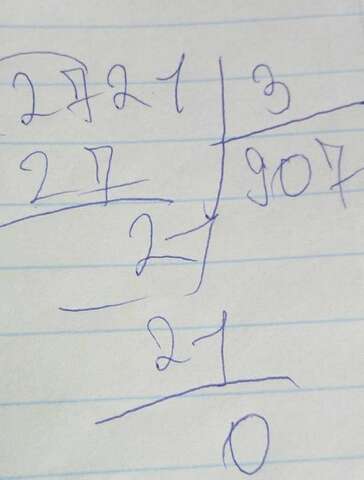 2721 3
27 907
21
21
0